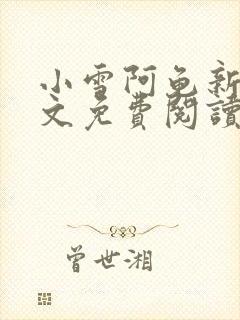 小雪阿龟新
文免費閱讀
曾世湘